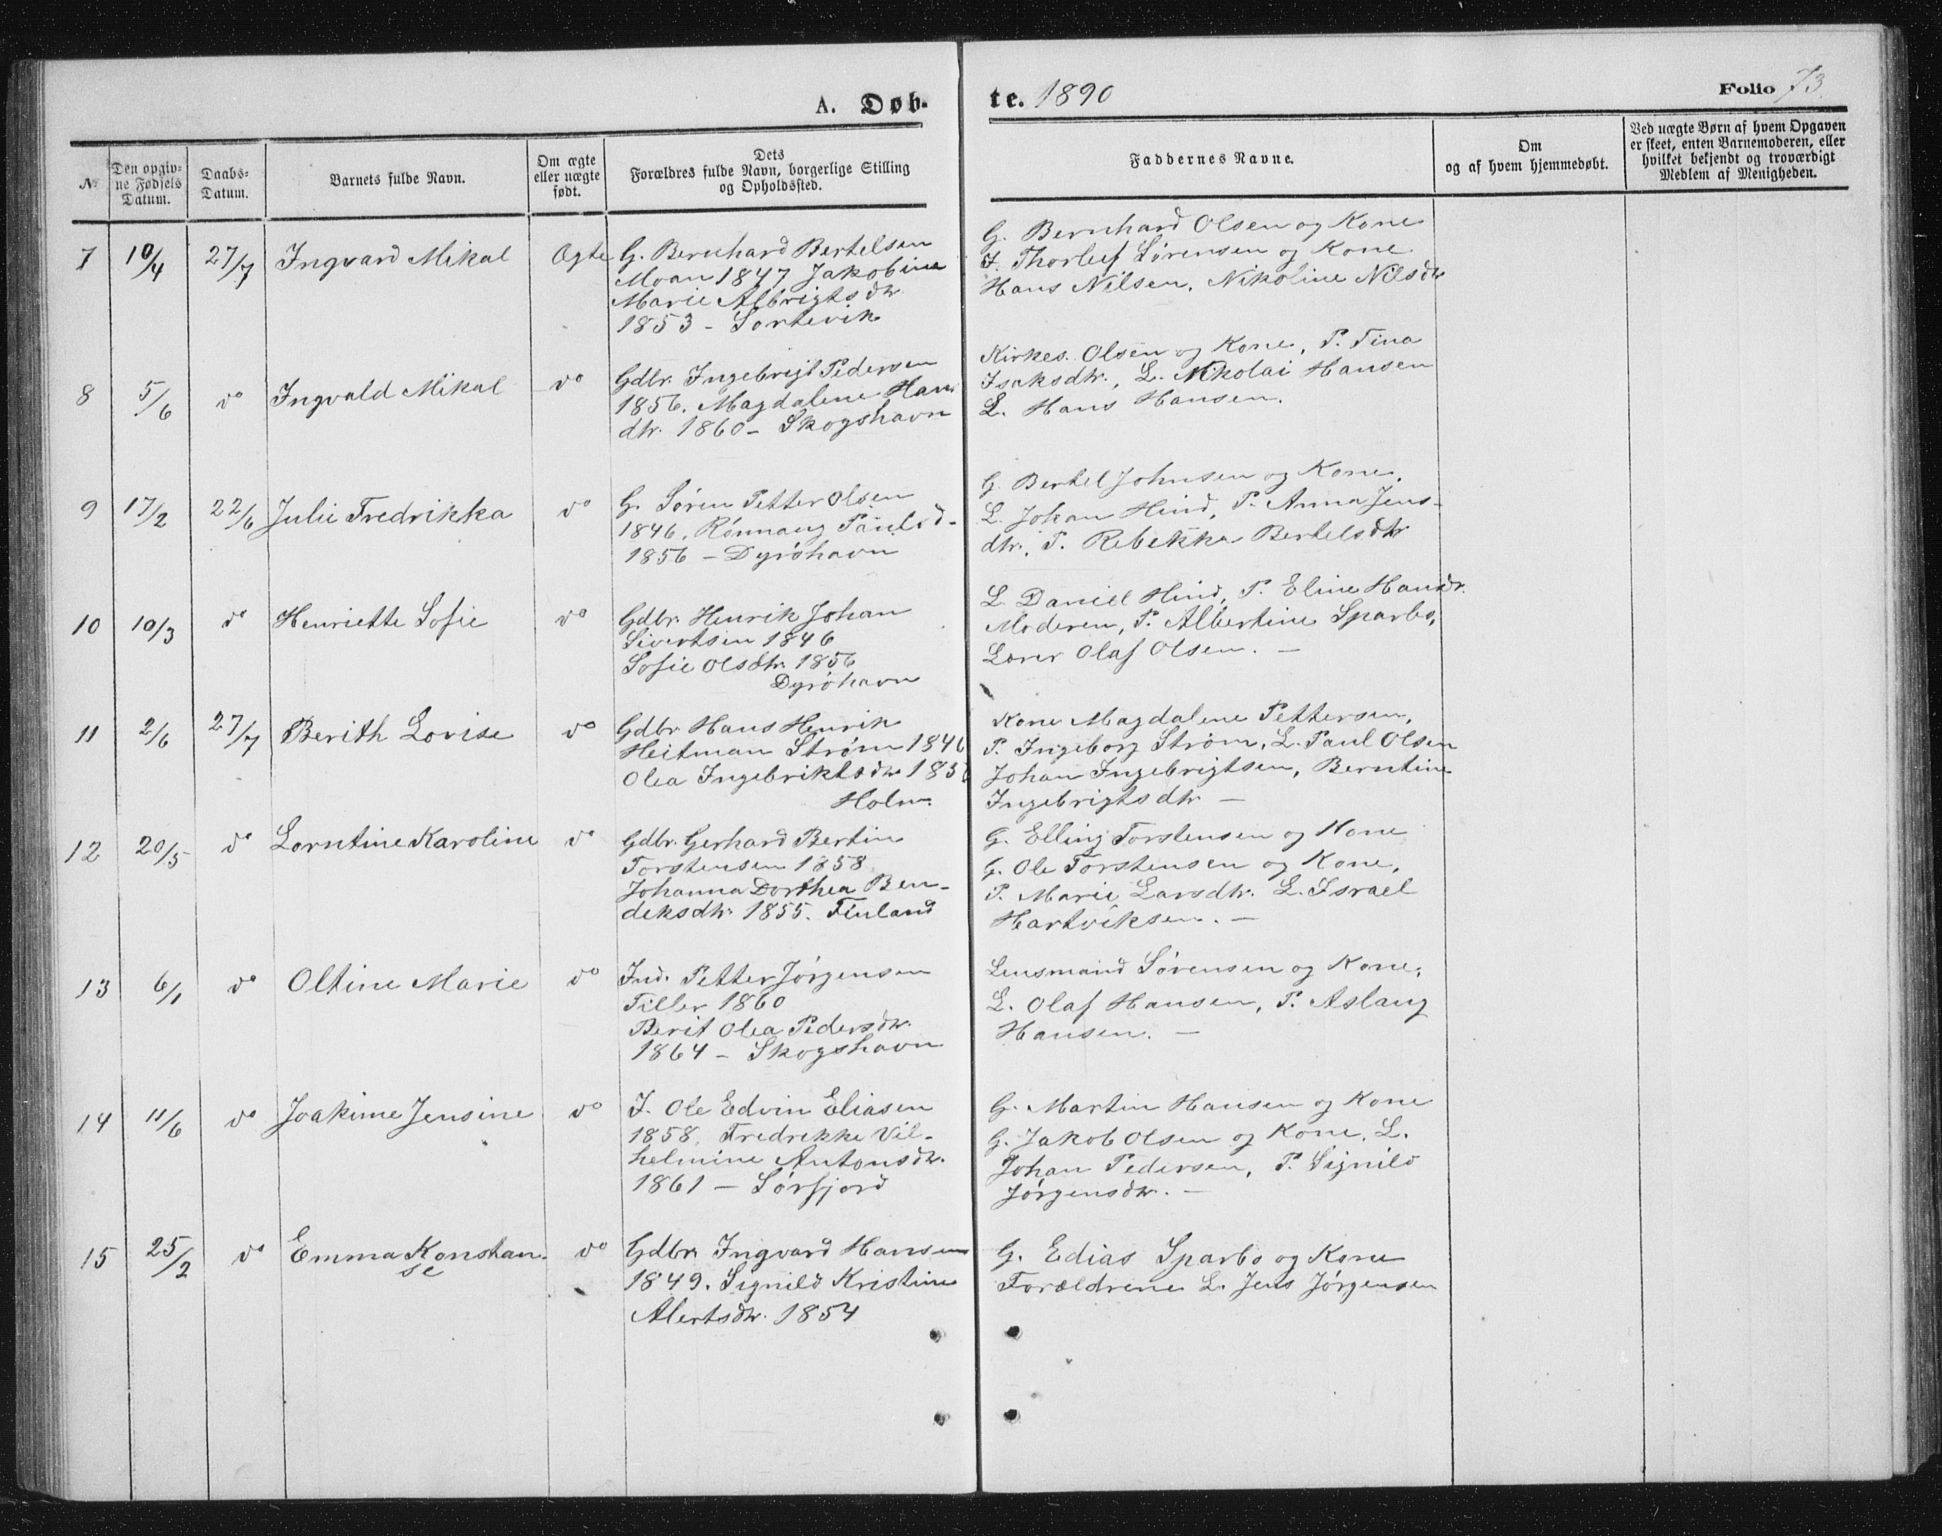 A. Døbte. 1890
Folio 73.
№
Den opgivne Fødsels Datum.
Daabs-Datum.
Barnets fulde Navn.
Om ægte eller uægte født.
Dets Forældres fulde Navn, borgerlige Stilling og Opholdssted.
Faddernes Navne.
Om og af hvem hjemmedøbt.
Ved uægte Børn af hvem Opgaven er skeet, enten Barnemoderen, eller hvilket bekjendt og troværdigt Medlem af Menigheden.
7 10/4 27/7 Ingvard Mikal Ægte
G. Bernhard Bertelsen
Moan 1847 Jakobine
Marie Albrigtsdtr
1853 - Sortevik
G. Bernhard Olsen og Kone
I. Thorleif Sørensen og Kone
Hans Nilsen, Nikoline Nilsdtr
8 5/6 do Ingvald Mikal do
Gdbr. Ingebrigt Pedersen
1856. Magdalene Hans
dtr. 1860 - Skogshavn
Kirkes. Olsen og Kone, P. Tina
Isaksdtr., L. Nikolai Hansen
L. Hans Hansen.
9 17/2 22/6 Julie Fredrikka do
G. Søren Petter Olsen
1846, Rønnaug Paulsd-
1856 - Dyrøhavn
G. Bertel Johnsen og Kone,
L. Johan Hind, P. Anna Jens-
dtr., P. Rebekka Bertelsdtr
10 10/3 do Henriette Sofie do
Gdbr. Henrik Johan
Sivertsen 1846
Sofie Olsdtr. 1856
Dyrøhavn
L. Daniel Hind, P. Eline Hansdr.
Moderen, P. Albertine Sparbo,
Lærer Olaf Olsen. -
11 2/6 27/7 Berith Lovise do
Gdbr. Hans Henrik
Heitman Strøm 1846
Olea Ingebriktsdtr 185
Holm.
Kone Magdalene Pettersen,
P. Ingeborg Strøm, L. Paul Olsen
Johan Ingebrigtsen, Berntine
Ingebrigtsdtr -
12 20/5 do Lorntine Karoline do
Gdbr. Gerhard Bertin
Torstensen 1858,
Johanna Dorthea Ben-
deksdtr. 1855. Finland
G. Elling Torstensen og Kone
G. Ole Torstensen og Kone,
P. Marie Larsdtr. L. Israel
Hartviksen. -
13 6/1 do Oltine Marie do
Ind. Petter Jørgensen
Tiller 1860
Berit Olea Pedersdtr.
1864 - Skogshavn
Lensmand Sørensen og Kone,
L. Olaf Hansen, P. Aslaug
Hansen. -
14 11/6 do Joakime Jensine do
I. Ole Edvin Eliasen
1858, Fredrekke Vil-
helmine Antonsdtr.
1861 - Sørfjord
G. Martin Hansen og Kone
G. Jakob Olsen og Kone, L.
Johan Pedersen, P. Signild
Jørgensdtr. -
15 25/2 do Emma Konstan-
se do
Gdbr. Ingvard Hansen
1849. Signild Kristine
Alertsdtr. 1854
G. Edias Sparbo og Kone
Forældrene L. Jens Jørgensen